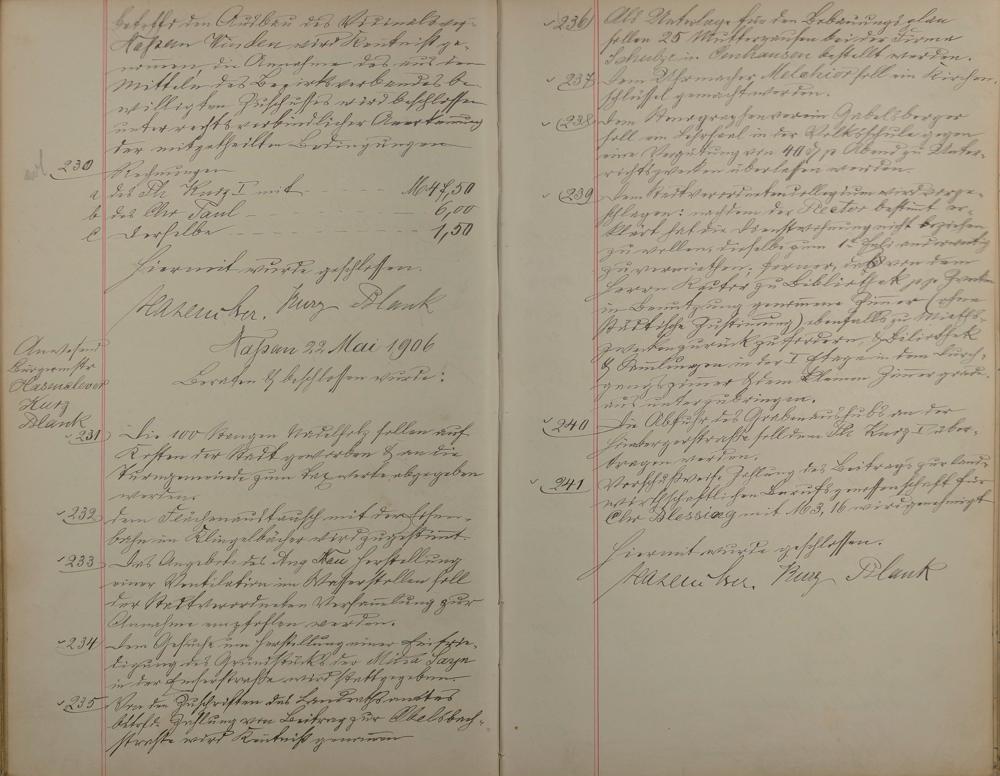 betreffs den Ausbau des Vicinalweg-
Nassau Winden wird Kenntniß ge-
nommen, die Annahme des aus den
Mitteln des Bezirksverbandes be-
willigten Zuschusses wird beschlossen
unter rechtsverbindlicher Anerkennung
der mitgetheilten Bedingungen
230 Rechnungen
a des Ph. Kurz I mit M 47,50
b des Chr Paul 6,00
c Derselbe 1,50
Hiermit wurde geschlossen.
Hasenclever. Kurz Blank
Nassau 22 Mai 1906
Anwesend
Bürgermstr
Hasenclever
Kurz
Blank
Beraten & beschlossen wurde:
231 Die 100 Stangen Nadelholz sollen auf
Kosten der Stadt geworben & an die
Turngemeinde zum Taxwerte abgegeben
werden.
232 Dem Flächenaustausch mit der Eisen-
bahn im Klingelbächer wird zugestimmt.
233 Das Angebot des Aug Nau Herstellung
einer Ventilation im Wasserstollen soll
der Stadtverordneten Versammlung zur
Annahme empfohlen werden.
234 Dem Gesuche um Herstellung einer Einfrie-
digung des Grundstücks der Mina
in der Emserstraße wird stattgegeben.
235 Von den Zuschriften des Landrathsamtes
betrfds. Zahlung von Beitrag zur
straße wird Kenntniß genommen
236 Als Unterlage für den Bebauungsplan
sollen 25 bei der Firma
Schulze in Oenhausen bestellt werden.
237 Dem Uhrmacher Melchior soll ein Kirchen-
schlüssel gemacht werden.
238 Dem Stenographenverein Gabelsberger
soll ein Lehrsaal in der Volksschule gegen
eine Vergütung von 40 ₰ p Abend zu Unter-
richtszwecken überlassen werden.
239 Dem Stadtverordnetenkollegium wird vorge-
schlagen: nachdem der Rector bestimmt er-
klärt hat die Dienstwohnung nicht beziehen
zu wollen, dieselbe zum 1t Juli anderweitig
zu vermiethen; ferner, das von dem
Herrn Rector zu Bibliothek pp. Zwecken
in Benutzung genommene Zimmer (ohne
städtische Zustimmung) ebenfalls zu Mieths-
zwecken zurück zu fordern, & Bibliothek
& Samlungen in der I Etage in dem Durch-
gangszimmer & dem kleinen Zimmer grade-
aus unterzubringen.
240 Die Abfuhr des Grabenaushubs an der
Hömbergerstraße soll dem Ph Kurz I über-
tragen werden.
241 Vorschußweise Zahlung des Beitrags zur land-
wirthschaftlichen Berufsgenossenschaft für
Chr Blessing mit M 3,16 wird genehmigt
Hiermit wurde geschlossen.
Hasenclever. Kurz Blank